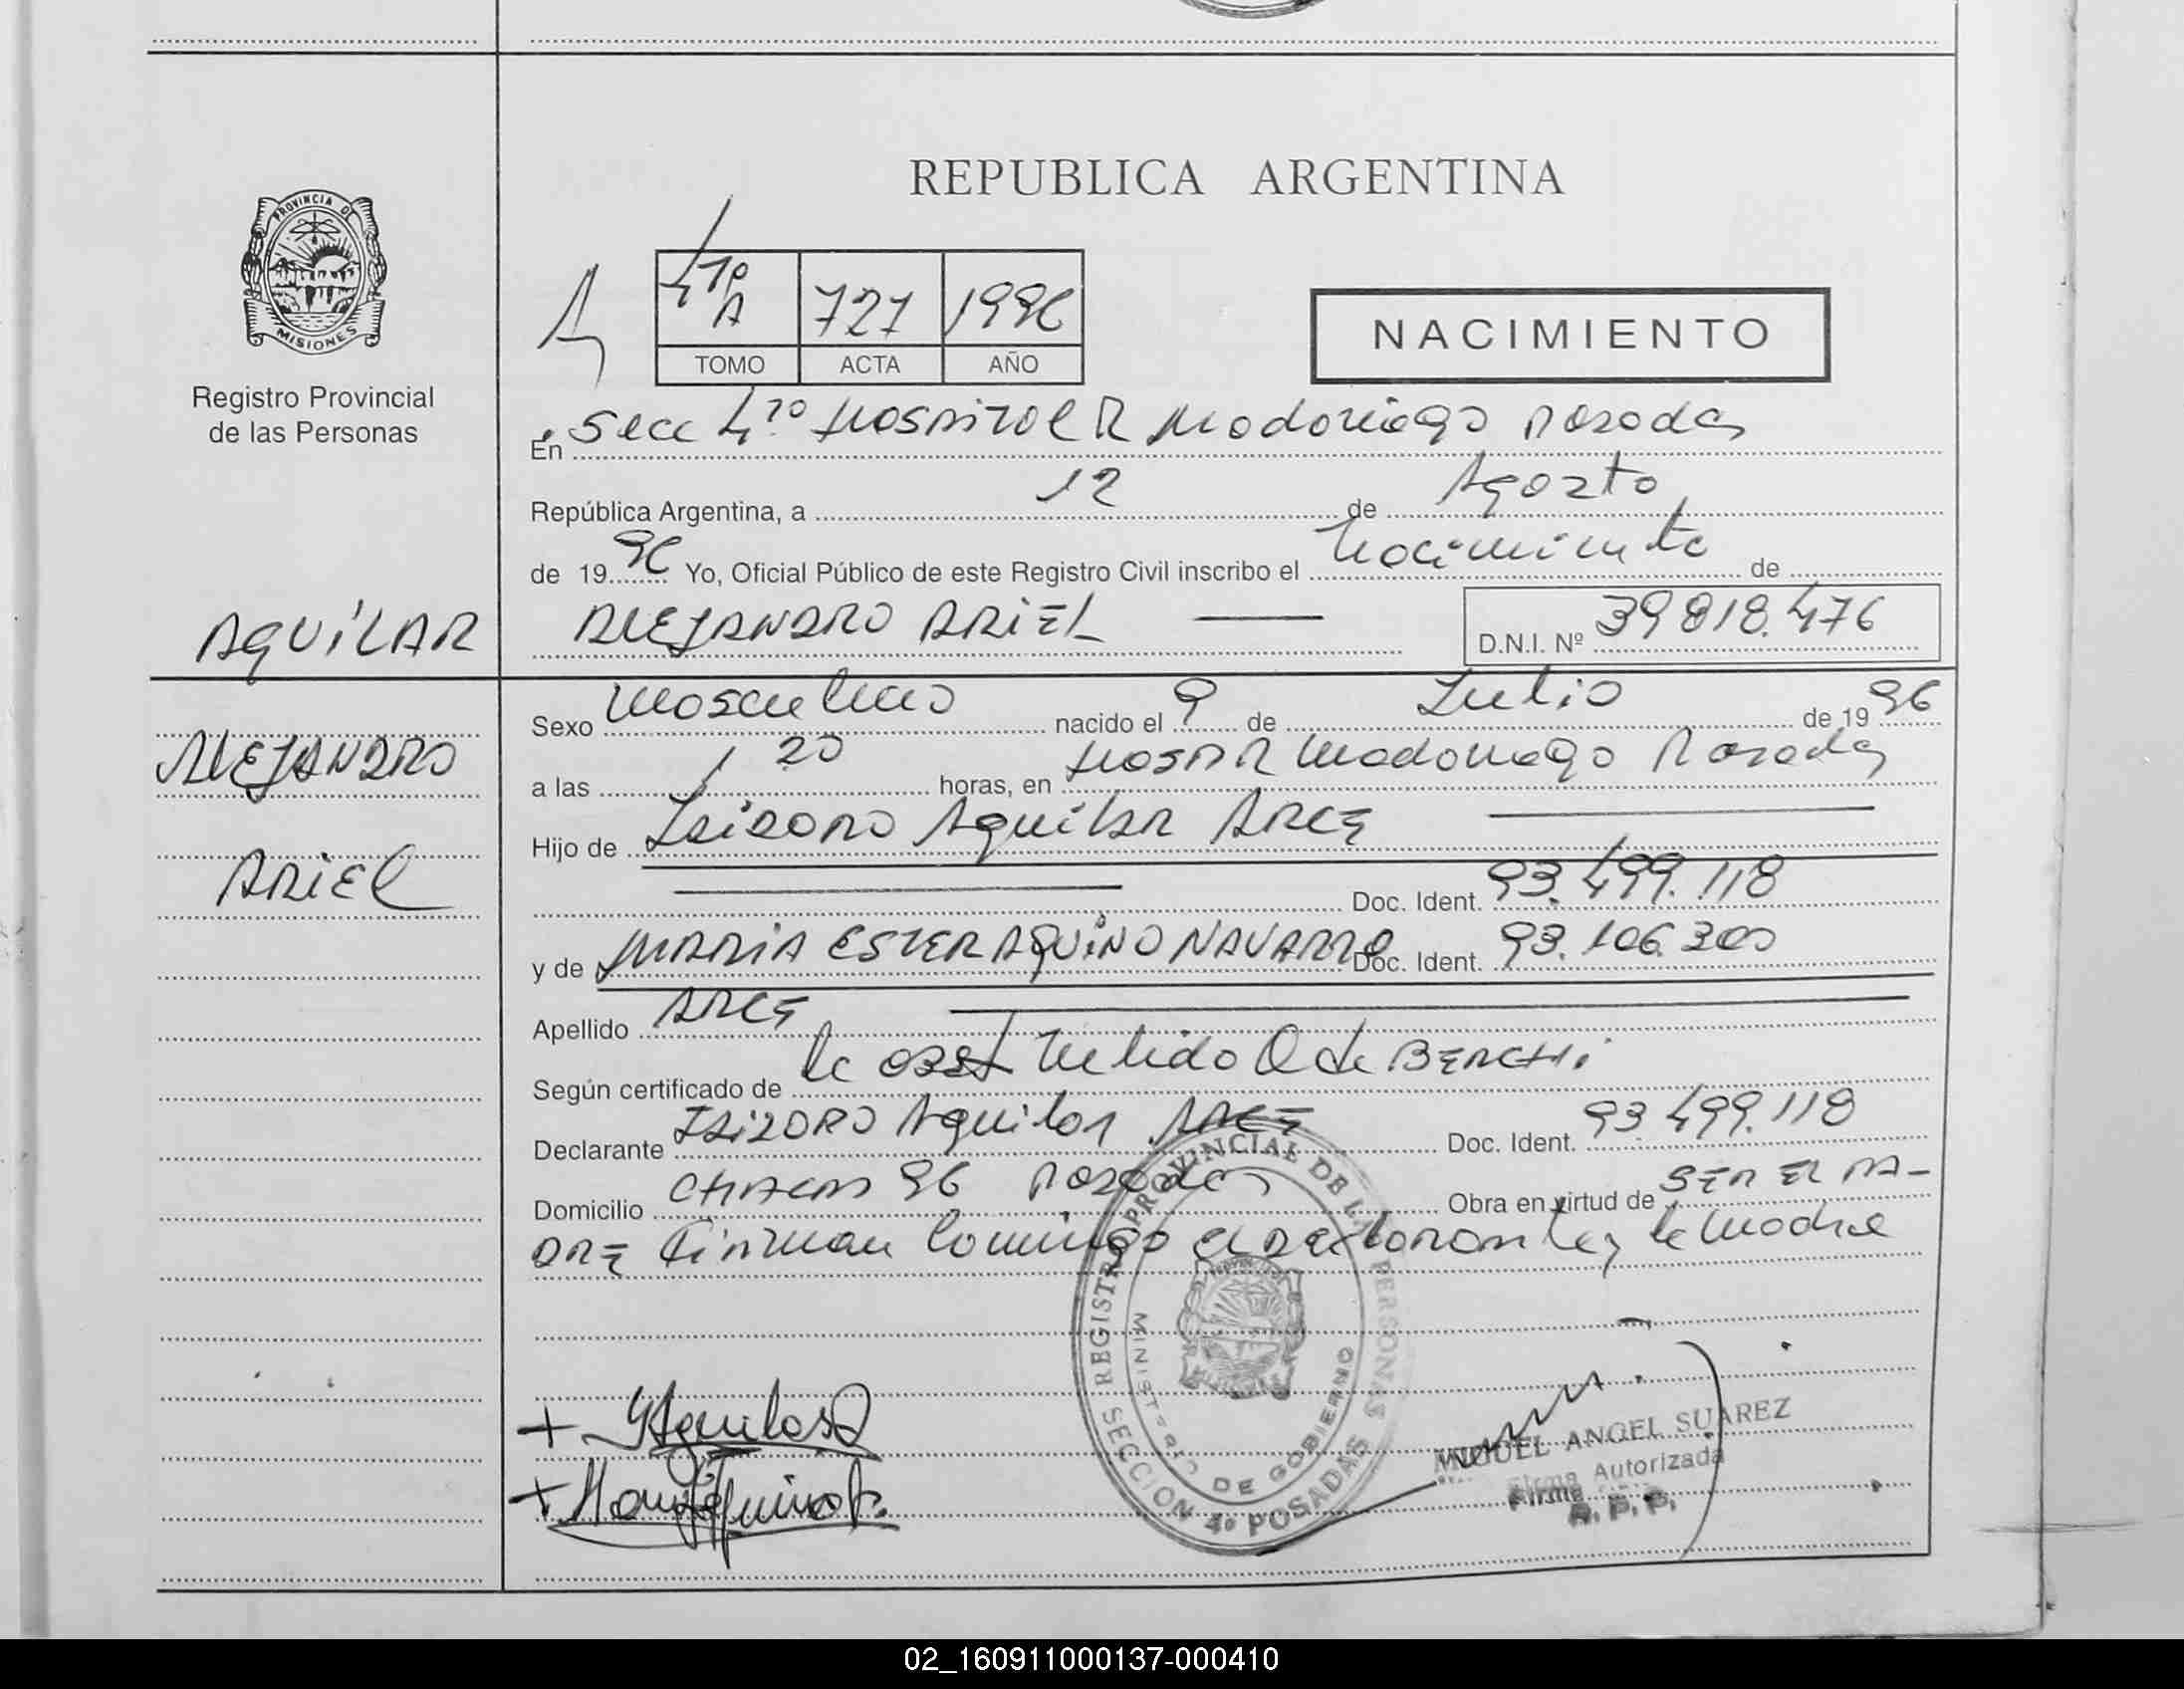 REPUBLICA ARGENTINA
PROVINCIA DE
MISIONES
Registro Provincial
de las Personas
727 1996
TOMO ACTA AÑO
NACIMIENTO
En Secc 4ta Hospital R Madariaga Posadas
República Argentina, a 12 de Agozto
de 1996 Yo, Oficial Público de este Registro Civil inscribo el Nacimiento de
AGUILAR ALEJANDRO ARIEL D.N.I. Nº 39 818.476
Sexo Masculino nacido el 9 de Julio de 1996
ALEJANDRO
a las 1 20 horas, en Hosp R Madariaga Posadas
Hijo de Isidoro Aguilar ARCE
ARIEL
Doc. Ident. 93.499.118
y de MARIA ESTER AQUINO NAVARRO Doc. Ident. 93.106.300
Apellido ARCE
Según certificado de la obst Nelida Q de BERCHI
Declarante ISIDORO Aguilar ARCE Doc. Ident. 93 499.118
Domicilio 96 Posadas Obra en virtud de SER EL PA-
DRE Firman conmigo el declarante y la madre
REGISTRO PROVINCIAL DE LAS PERSONAS
MINISTERIO DE GOBIERNO
SECCION 4º POSADAS
MIGUEL ANGEL SUAREZ
Firma Autorizada
R. P. P.
02_160911000137-000410